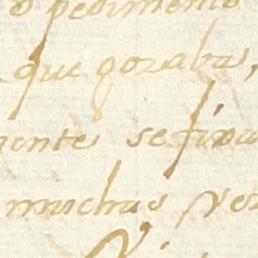 o pedimento
que gozaba,
mente se fixa
muchas vez